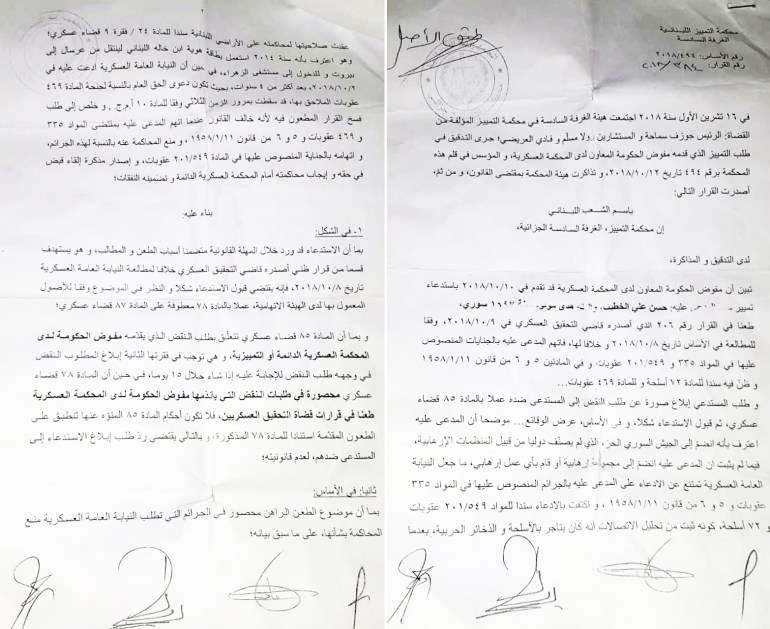 محكمة التمييز اللبنانية
الغرفة السادسة
رقم الأساس: ٢٠١٨/٤٩٤
رقم القرار:
طبق الأصل
في ١٦ تشرين الأول سنة ٢٠١٨ اجتمعت هيئة الغرفة السادسة في محكمة التمييز المؤلفة من
القضاة: الرئيس جوزف سماحة و المستشارين رولا مسلّم و فادي العريضي؛ جرى التدقيق في
طلب التمييز الذي قدمه مفوض الحكومة المعاون لدى المحكمة العسكرية، و المؤسس في قلم هذه
المحكمة برقم ٤٩٤ تاريخ ٢٠١٨/١٠/١٢، و تذاكرت هيئة المحكمة بمقتضى القانون، و من ثم،
أصدرت القرار التالي:
باسم الشعب اللبناني
إن محكمة التمييز، الغرفة السادسة الجزائية،
لدى التدقيق و المذاكرة،
تبين أن مفوض الحكومة المعاون لدى المحكمة العسكرية قد تقدم في ٢٠١٨/١٠/١٠ باستدعاء
تمييز عليه: حسن علي الخطيب، سوري،
طعنا في القرار رقم ٢٠٦ الذي أصدره قاضي التحقيق العسكري في ٢٠١٨/١٠/٩، وفقا
للمطالعة في الأساس تاريخ ٢٠١٨/١٠/٨ و خلافا لها، فاتهم المدعى عليه بالجنايات المنصوص
عليها في المواد ٣٣٥ و ٢٠١/٥٤٩ عقوبات، و في المادتين ٥ و ٦ من قانون ١٩٥٨/١/١١
و ظنّ فيه سندا للمادة ٧٢ أسلحة و للمادة ٤٦٩ عقوبات...
و طلب المستدعي إبلاغ صورة عن طلب النقض إلى المستدعى ضده عملا بالمادة ٨٥ قضاء
عسكري، ثم قبول الاستدعاء شكلا، و في الأساس، عرض الوقائع... موضحا أن المدعى عليه
اعترف بأنه انضمّ إلى الجيش السوري الحرّ، الذي لم يصنّف دوليا من قبيل المنظمات الإرهابية،
فيما لم يثبت ان المدعى عليه انضمّ إلى مجموعة إرهابية أو قام بأي عمل إرهابي، ما جعل النيابة
العامة العسكرية تمتنع عن الادعاء على المدعى عليه بالجرائم المنصوص عليها في المواد ٣٣٥
عقوبات و ٥ و ٦ من قانون ١٩٥٨/١/١١، و اكتفت بالادعاء سندا للمواد ٢٠١/٥٤٩ عقوبات
و ٧٢ أسلحة، كونه ثبت من تحليل الاتصالات أنه كان يتاجر بالأسلحة و الذخائر الحربية، بعدما
٢
عقدت صلاحيتها لمحاكمته على الأراضي اللبنانية سندا للمادة ٢٤/ فقرة ٩ قضاء عسكري،
وهو اعترف بأنه سنة ٢٠١٤ استعمل بطاقة هوية ابن خاله اللبناني لينتقل من عرسال إلى
بيروت و للدخول إلى مستشفى الزهراء، في حين أن النيابة العامة العسكرية ادعت عليه في
٢٠١٨/١٠/٢، بعد أكثر من ٤ سنوات، بحيث تكون دعوى الحق العام بالنسبة لجنحة المادة ٤٦٩
عقوبات الملاحق بها، قد سقطت بمرور الزمن الثلاثي وفقا للمادة ١٠ أ.م.ج.، و خلص إلى طلب
فسخ القرار المطعون فيه لأنه خالف القانون عندما اتهم المدعى عليه بمقتضى المواد ٣٣٥
و ٤٦٩ عقوبات و ٥ و ٦ من قانون ١٩٥٨/١/١١، و منع المحاكمة عنه بالنسبة لهذه الجرائم،
و اتهامه بالجناية المنصوص عليها في المادة ٢٠١/٥٤٩ عقوبات، و إصدار مذكرة إلقاء قبض
في حقه و إيجاب محاكمته أمام المحكمة العسكرية الدائمة و تضمينه النفقات؛
بناء عليه:
١- في الشكل:
بما أن الاستدعاء قد ورد خلال المهلة القانونية متضمنا أسباب الطعن و المطالب، و هو يستهدف
قسما من قرار ظني أصدره قاضي التحقيق العسكري خلافا لمطالعة النيابة العامة العسكرية
تاريخ ٢٠١٨/١٠/٨، فإنه يقتضي قبول الاستدعاء شكلا و النظر في الموضوع وفقا للأصول
المعمول بها لدى الهيئة الاتهامية، عملا بالمادة ٧٨ معطوفة على المادة ٨٧ قضاء عسكري؛
و بما أن المادة ٨٥ قضاء عسكري تتعلّق بطلب النقض الذي يقدّمه مفوض الحكومة لدى
المحكمة العسكرية الدائمة أو التمييزية، و هي توجب في فقرتها الثانية إبلاغ المطلوب النقض
في وجهه طلب النقض للإجابة عليه إذا شاء خلال ١٥ يوما، في حين أن المادة ٧٨ قضاء
عسكري محصورة في طلبات النقض التي يقدّمها مفوض الحكومة لدى المحكمة العسكرية
طعنا في قرارات قضاة التحقيق العسكريين، فلا تكون أحكام المادة ٨٥ المنوّه عنها تنطبق على
الطعون المقدّمة استنادا للمادة ٧٨ المذكورة، و بالتالي يقتضي ردّ طلب إبلاغ الاستدعاء إلى
المستدعى ضدهم، لعدم قانونيته؛
ثانيا: في الأساس:
بما أن موضوع الطعن الراهن محصور في الجرائم التي تطلب النيابة العامة العسكرية منع
المحاكمة بشأنها، على ما سبق بيانه؛